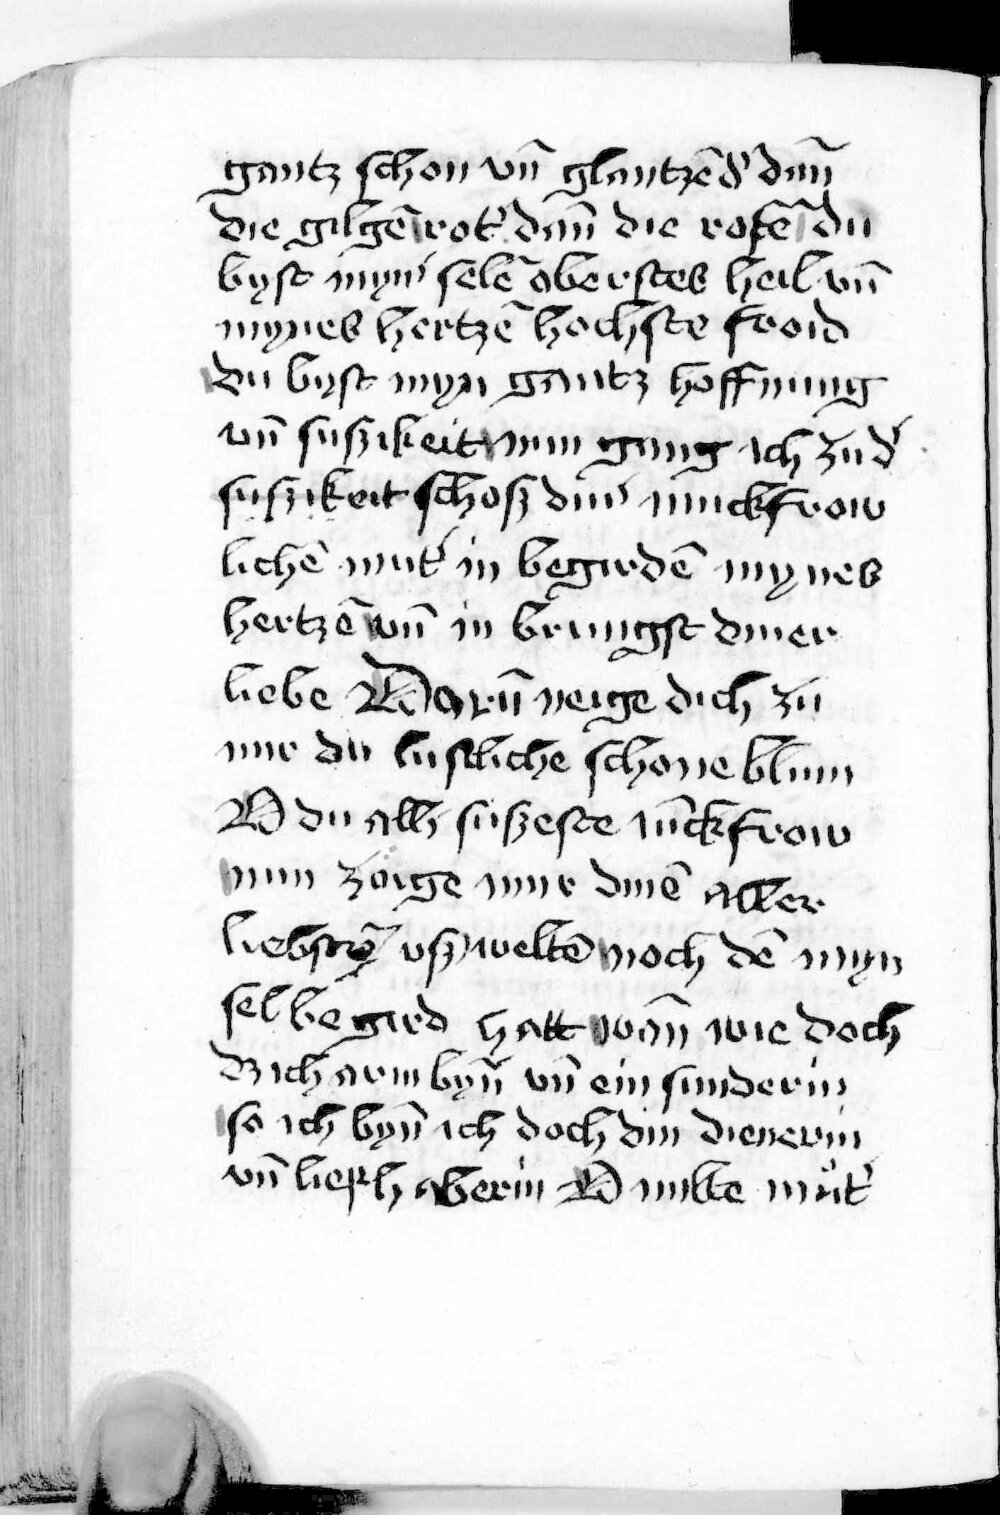 gantz schon vn̄ glantzēd' dan̄
die gilgē rot' dan̄ die rosē du
byst myn' selē oberstes heil vn̄
mynes hertzē hochste froid
du byst myn gantz hoffnung
vn̄ suszikeit nun gang ich zu d'
suszikeit schosz din' iunckfrow
lichē mut' in begirdē mynes
hertzē vn̄ in brungst diner
liebe Darū neige dich zu
mir du lustliche schone blum
O du allʼ suszeste iūckfrow
nun zoige mir dinē aller
liebstē vszweltē noch dē myn
sel begird hatt wan̄ wie doch
dz ich arm byn̄ vn̄ ein sunderin
so ich byn̄ ich doch din dienerin
vn̄ liephaberin O milte muͦt'